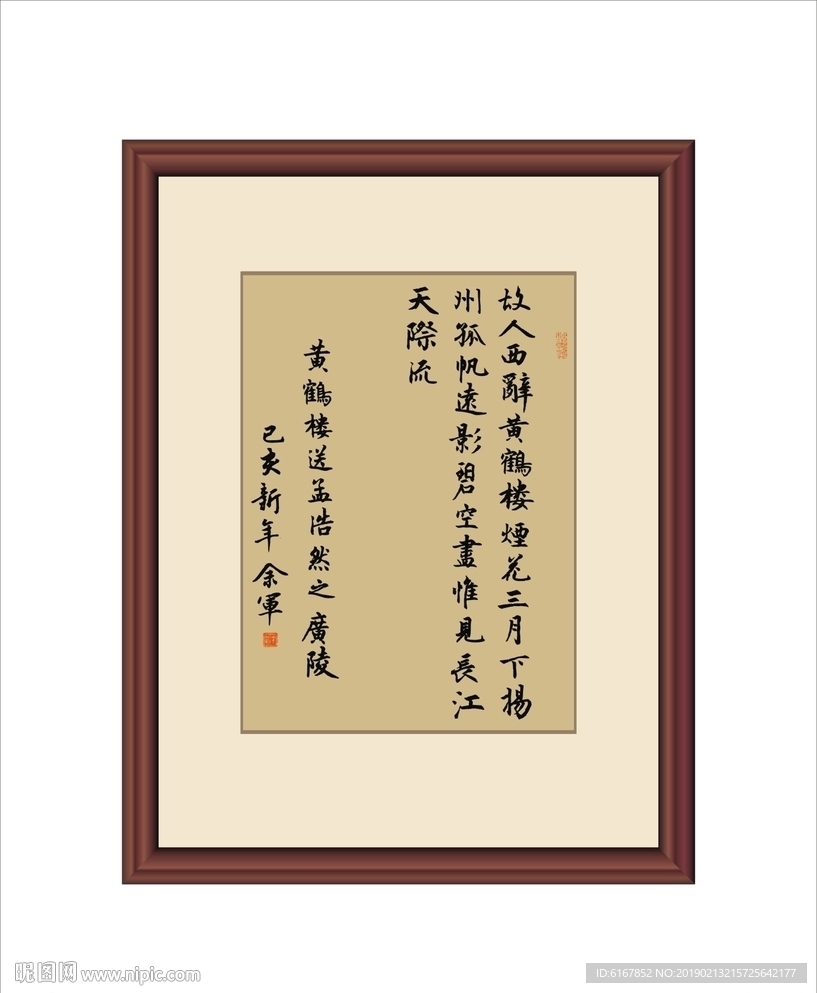 故人西辭黄鶴楼煙花三月下揚
州孤帆遠影碧空盡惟見長江
天際流
黄鶴楼送孟浩然之廣陵
己亥新年余軍
昵图网 www.nipic.com
ID:6167852 NO:20190213215725642177